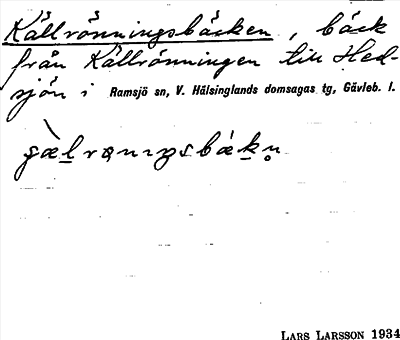 Källrönningsbäcken, bäck
från Källrönningen till Hed-
sjön i Ramsjö sn, V. Hälsinglands domsagas tg, Gävleb. l.
LARS LARSSON 1934